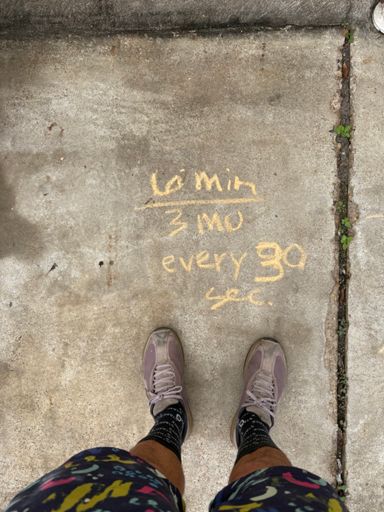 6 min
3 MU
every 30
sec.